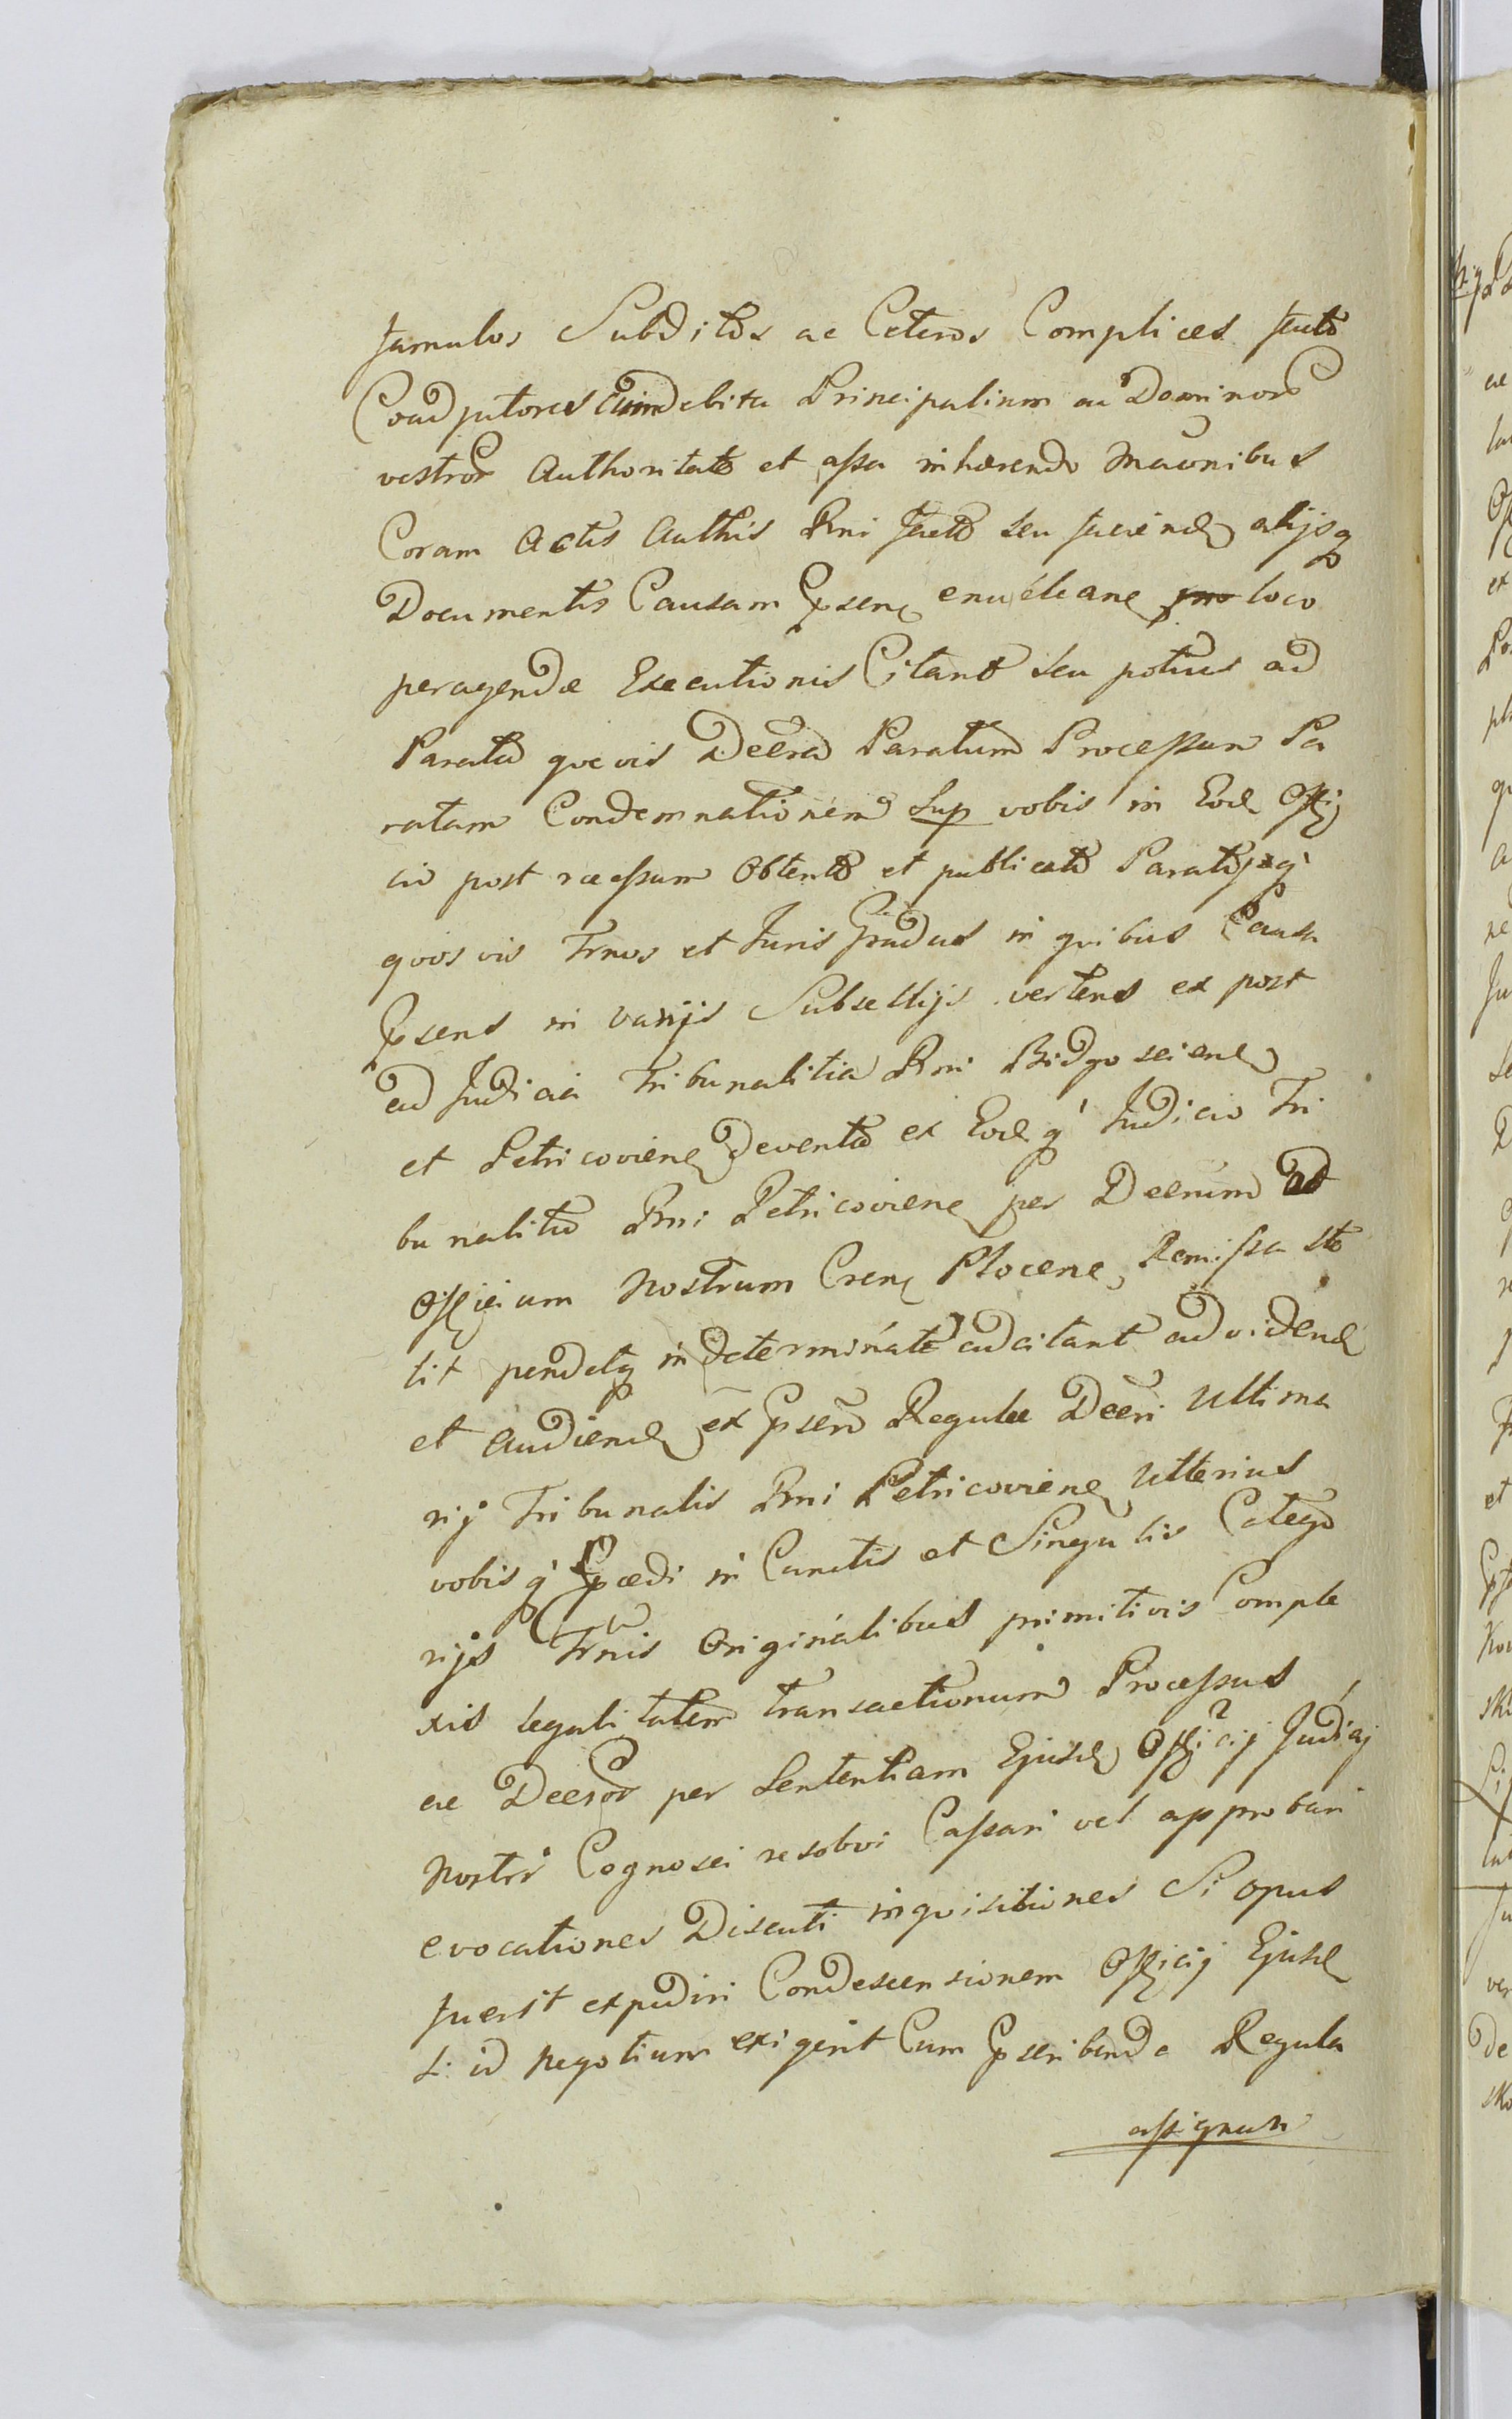 famulos Subditos ac Ceteros Complices facto
Coadjutores cum debita Principalium ac Dominor
vestror Authoritate et assa inhærendo Maonibus
Coram Actis Authis Rni facto seu faciend alijsq
Documentis Causam Ppsenc enucleanc pro loco
peragendæ Executionis Citant seu potius ad
Parata quævis Decra Paratum Processum Pa
ratam Condemnationem Sup vobis in Eod Offi
cio post recessum Obtento et publicato Paratosq
quosvis Trnos et Juris Gradus in quibus Causa
Ppsens in varijs Subsellijs vertens ex post
ad Judicia Tribunalitia Rni Bidgosciens
et Petricoviens deventa ex Eod q Judicio Tri
bunalitio Rni Petricoviens per Decrum ad
Officium Nostrum Crens Plocens Remissa sto
tit pendetq indeterminate adcitant ad vidend
et audiend ex Ppsero Regulæ Decri Ultima
rij Tribunalis Rni Petricoviens Ulterius
vobisq Ppædi in Cunctis et Singulis Catego
rijs Trnis Originalibus primitivis Comple
xis legalitatem transactionum Processus
ac Decror per Sententiam Ejusd Officij Judicij
Nostri Cognosci resolvi Cassari vel approbari
evocationes Discuti inquisitiones Si opus
fuerit expediri Condescensionem Officij Ejusd
Si id negotium exigerit Cum Ppscribenda Regula
assignari